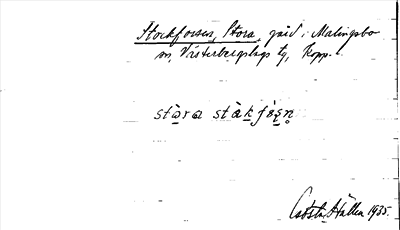 Stockforsen, Stora, gård i Malingsbo
sn, Västerbergslags tg, Kopp.
stɷ̀ra stàkfɔ̀ṣṇ
Gösta Hallén 1935.